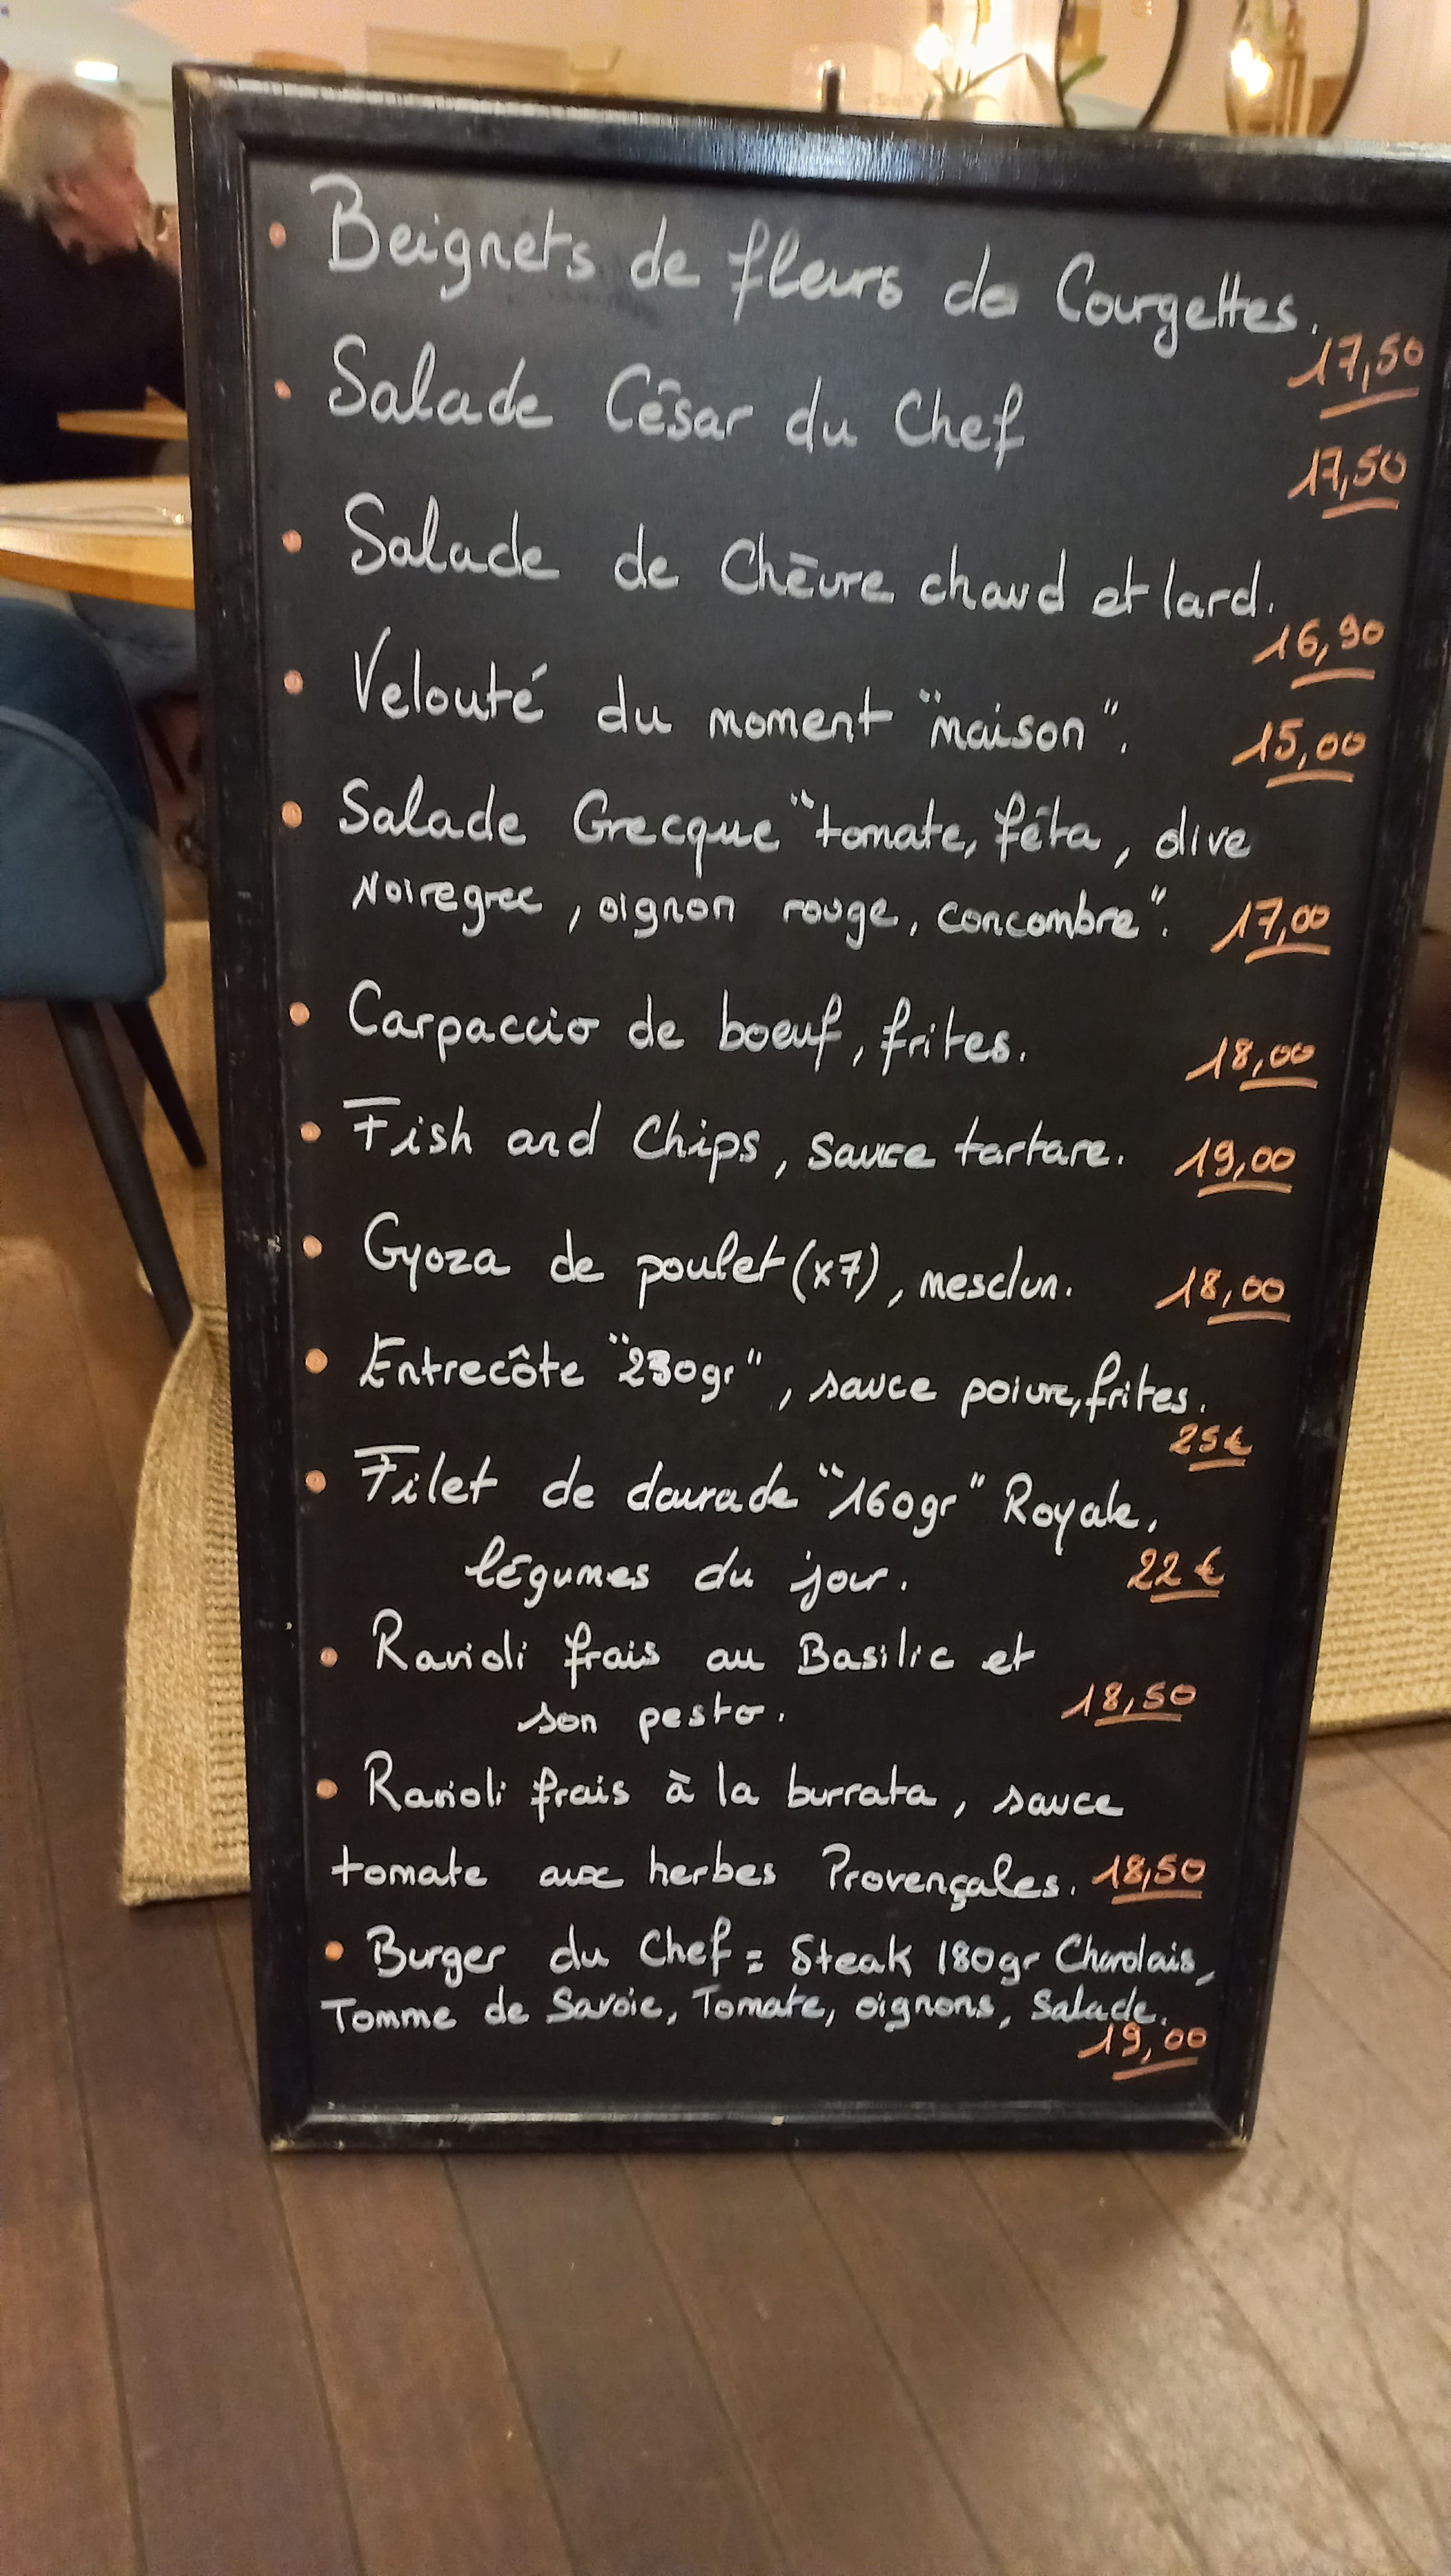 • Beignets de fleurs de Courgettes.
17,50
• Salade César du Chef
17,50
• Salade de Chèvre chaud et lard.
16,90
• Velouté du moment "maison". 15,00
• Salade Grecque "tomate, féta, olive
Noire grec, oignon rouge, concombre". 17,00
• Carpaccio de boeuf, frites. 18,00
• Fish and Chips, sauce tartare. 19,00
• Gyoza de poulet (x7), mesclun. 18,00
• Entrecôte "230gr", sauce poivre, frites.
25€
• Filet de daurade "160gr" Royale,
légumes du jour. 22€
• Ravioli frais au Basilic et
son pesto. 18,50
• Ravioli frais à la burrata, sauce
tomate aux herbes Provençales. 18,50
• Burger du Chef = Steak 180gr Charolais,
Tomme de Savoie, Tomate, oignons, Salade.
19,00